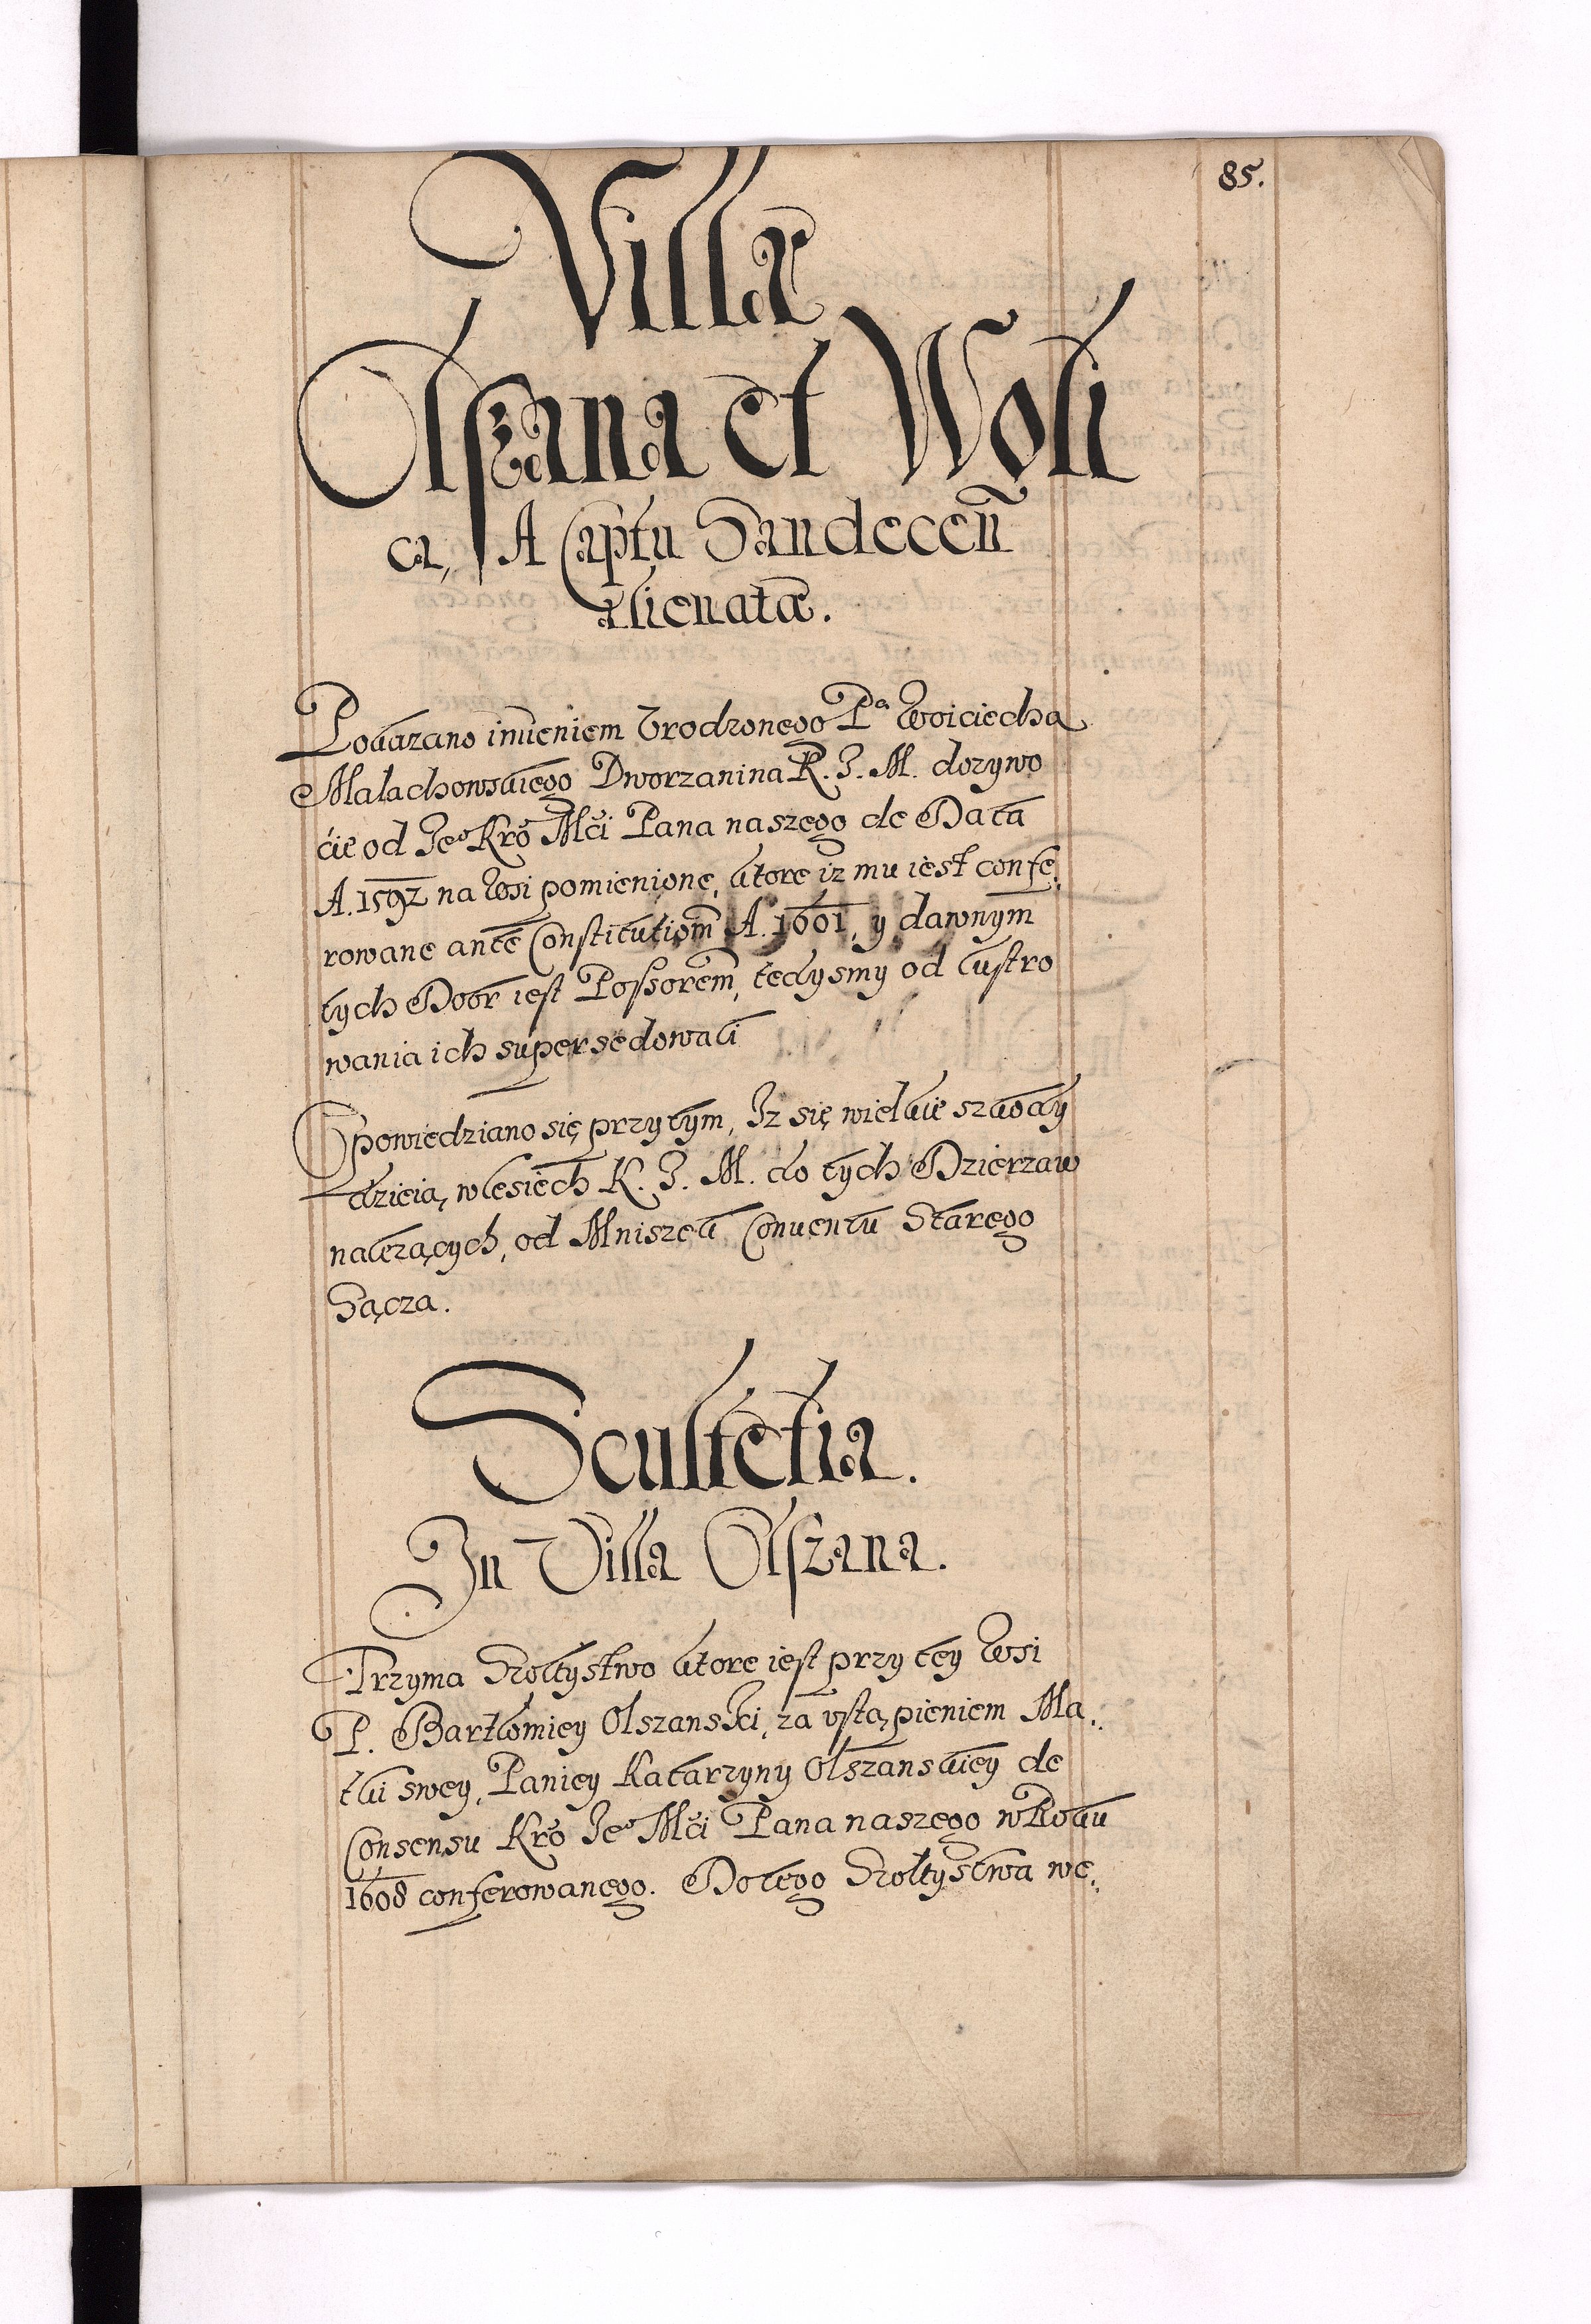 85.
Villæ
Olszana et Woli
ca, A Captu Sandeceñ
alienatæ.
Pokazano imieniem Vrodzonego Pa Woiciecha
Malachowskiego Dworzanina K. J. M. dozywo
cie od Jeo Kró Mći Pana naszego de Data
A. 1592 na Wsi pomienione, ktore iz mu iest confe,,
rowane ante Constitutiom̃ A. 1601, y dawnym
tych Dobr iest Possorem̃, tedysmy od lustro
wania ich supersedowali
Opowiedziano się przytym, Jz się wielkie szkody
dzieią, w lesiech K. J. M. do tych Dzierzaw
nalezących, od Mniszek Conuentu Starego
Sącza.
Scultetia.
In Villa Olszana.
Trzyma Szoltystwo ktore iest przy tey Wsi
P. Bartlomiey Olszanski, za vstąpieniem Ma,,
tki swey, Paniey Katarzyny Olszanskiey de
Consensu Kró Jeo Mći Pana naszego w Roku
1608 conferowanego. Do tego Szoltystwa we,,